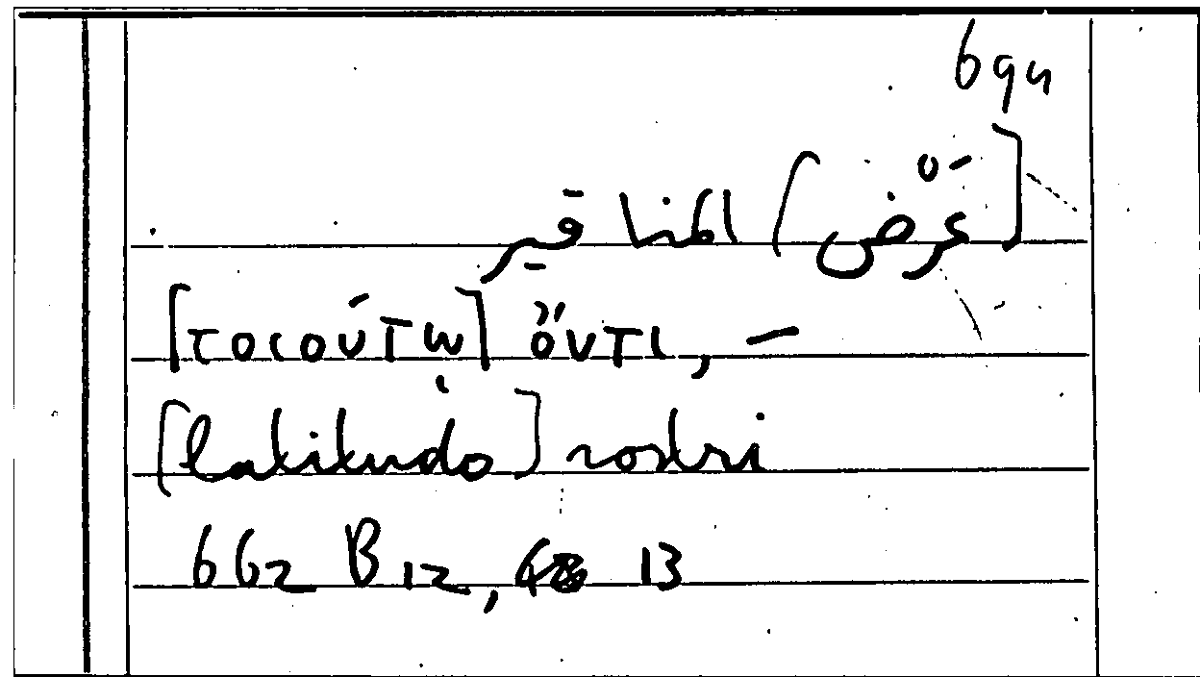 694
[عَرْض] المناقير
[τοιούτῳ] ὄντι, –
[latitudo] rostri
662 B 12, 13